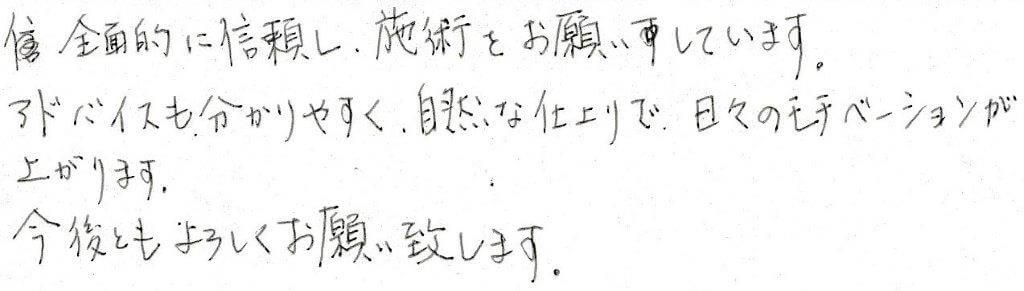 全面的に信頼し、施術をお願い申しています。
アドバイスも分かりやすく、自然な仕上りで、日々のモチベーションが
上がります。
今後ともよろしくお願い致します。